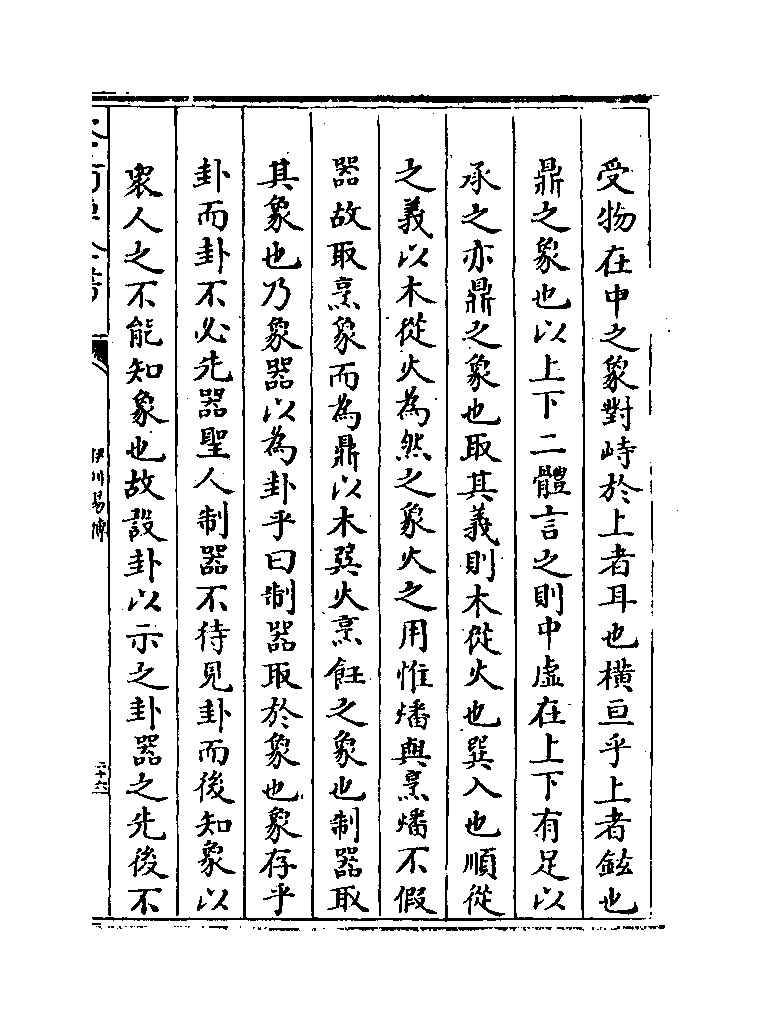 受物在中之象對峙於上者耳也橫亘乎上者鉉也
鼎之象也以上下二體言之則中虛在上下有足以
承之亦鼎之象也取其義則木從火也巽入也順從
之義以木從火為然之象火之用惟燔與烹燔不假
器故取烹象而為鼎以木巽火烹飪之象也制器取
其象也乃象器以為卦乎曰制器取於象也象存乎
卦而卦不必先器聖人制器不待見卦而後知象以
衆人之不能知象也故設卦以示之卦器之先後不
伊川易傳
二十六